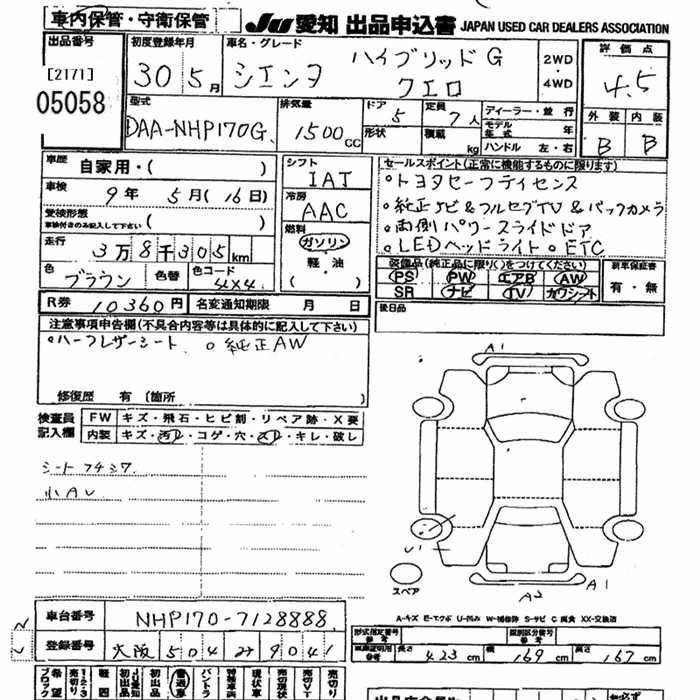 車内保管・守衛保管
JU愛知 出品申込書 JAPAN USED CAR DEALERS ASSOCIATION
出品番号
[2171]
05058
初度登録年月
30 5月
車名・グレード
シエンタ ハイブリッドG クエロ
2WD
・
4WD
評価点
4.5
外装 内装
B B
型式
DAA-NHP170G
排気量
1500CC
ドア 5
形状
定員 7人
積載 kg
ディーラー・並行
モデル年式 年
ハンドル 左・右
車歴 自家用・( )
車検 9年 5月(16日)
受検形態
車検付きのみ記入して下さい ( )
走行 3万8千305km
色 ブラウン 色替 色コード 4X4
シフト
IAT
冷房
AAC
燃料
ガソリン
・
軽・油
( )
セールスポイント(正常に機能するものに限る)
○トヨタセーフティセンス
○純正ナビ&フルセグTV&バックカメラ
○両側パワースライドドア
○LEDヘッドライト○ETC
装備品(純正品に限り○をつけてください)
PS PW エアB AW
SR ナビ TV カワシート
新車保証書
有・無
R券 10360円 名変通知期限 月 日
後日品
注意事項申告欄(不具合内容等は具体的に記入して下さい)
○ハーフレザーシート ○純正AW
修復歴 有 (箇所
検査員記入欄
FW キズ・飛石・ヒビ割・リペア跡・X要
内装 キズ・汚レ・コゲ・穴・スレ・キレ・破し
小AU
A1
U1
スペア
A2
A1
A-キズ E-エクボ U-凹み W-補修跡 S-サビ C-腐食 XX-交換済
車台番号 NHP170-7128888
登録番号 大阪 504 み 9041
形式指定番号 参考
類別区分番号 参考
車庫証明用 参考 長さ 423cm 幅 169cm 高さ 167cm